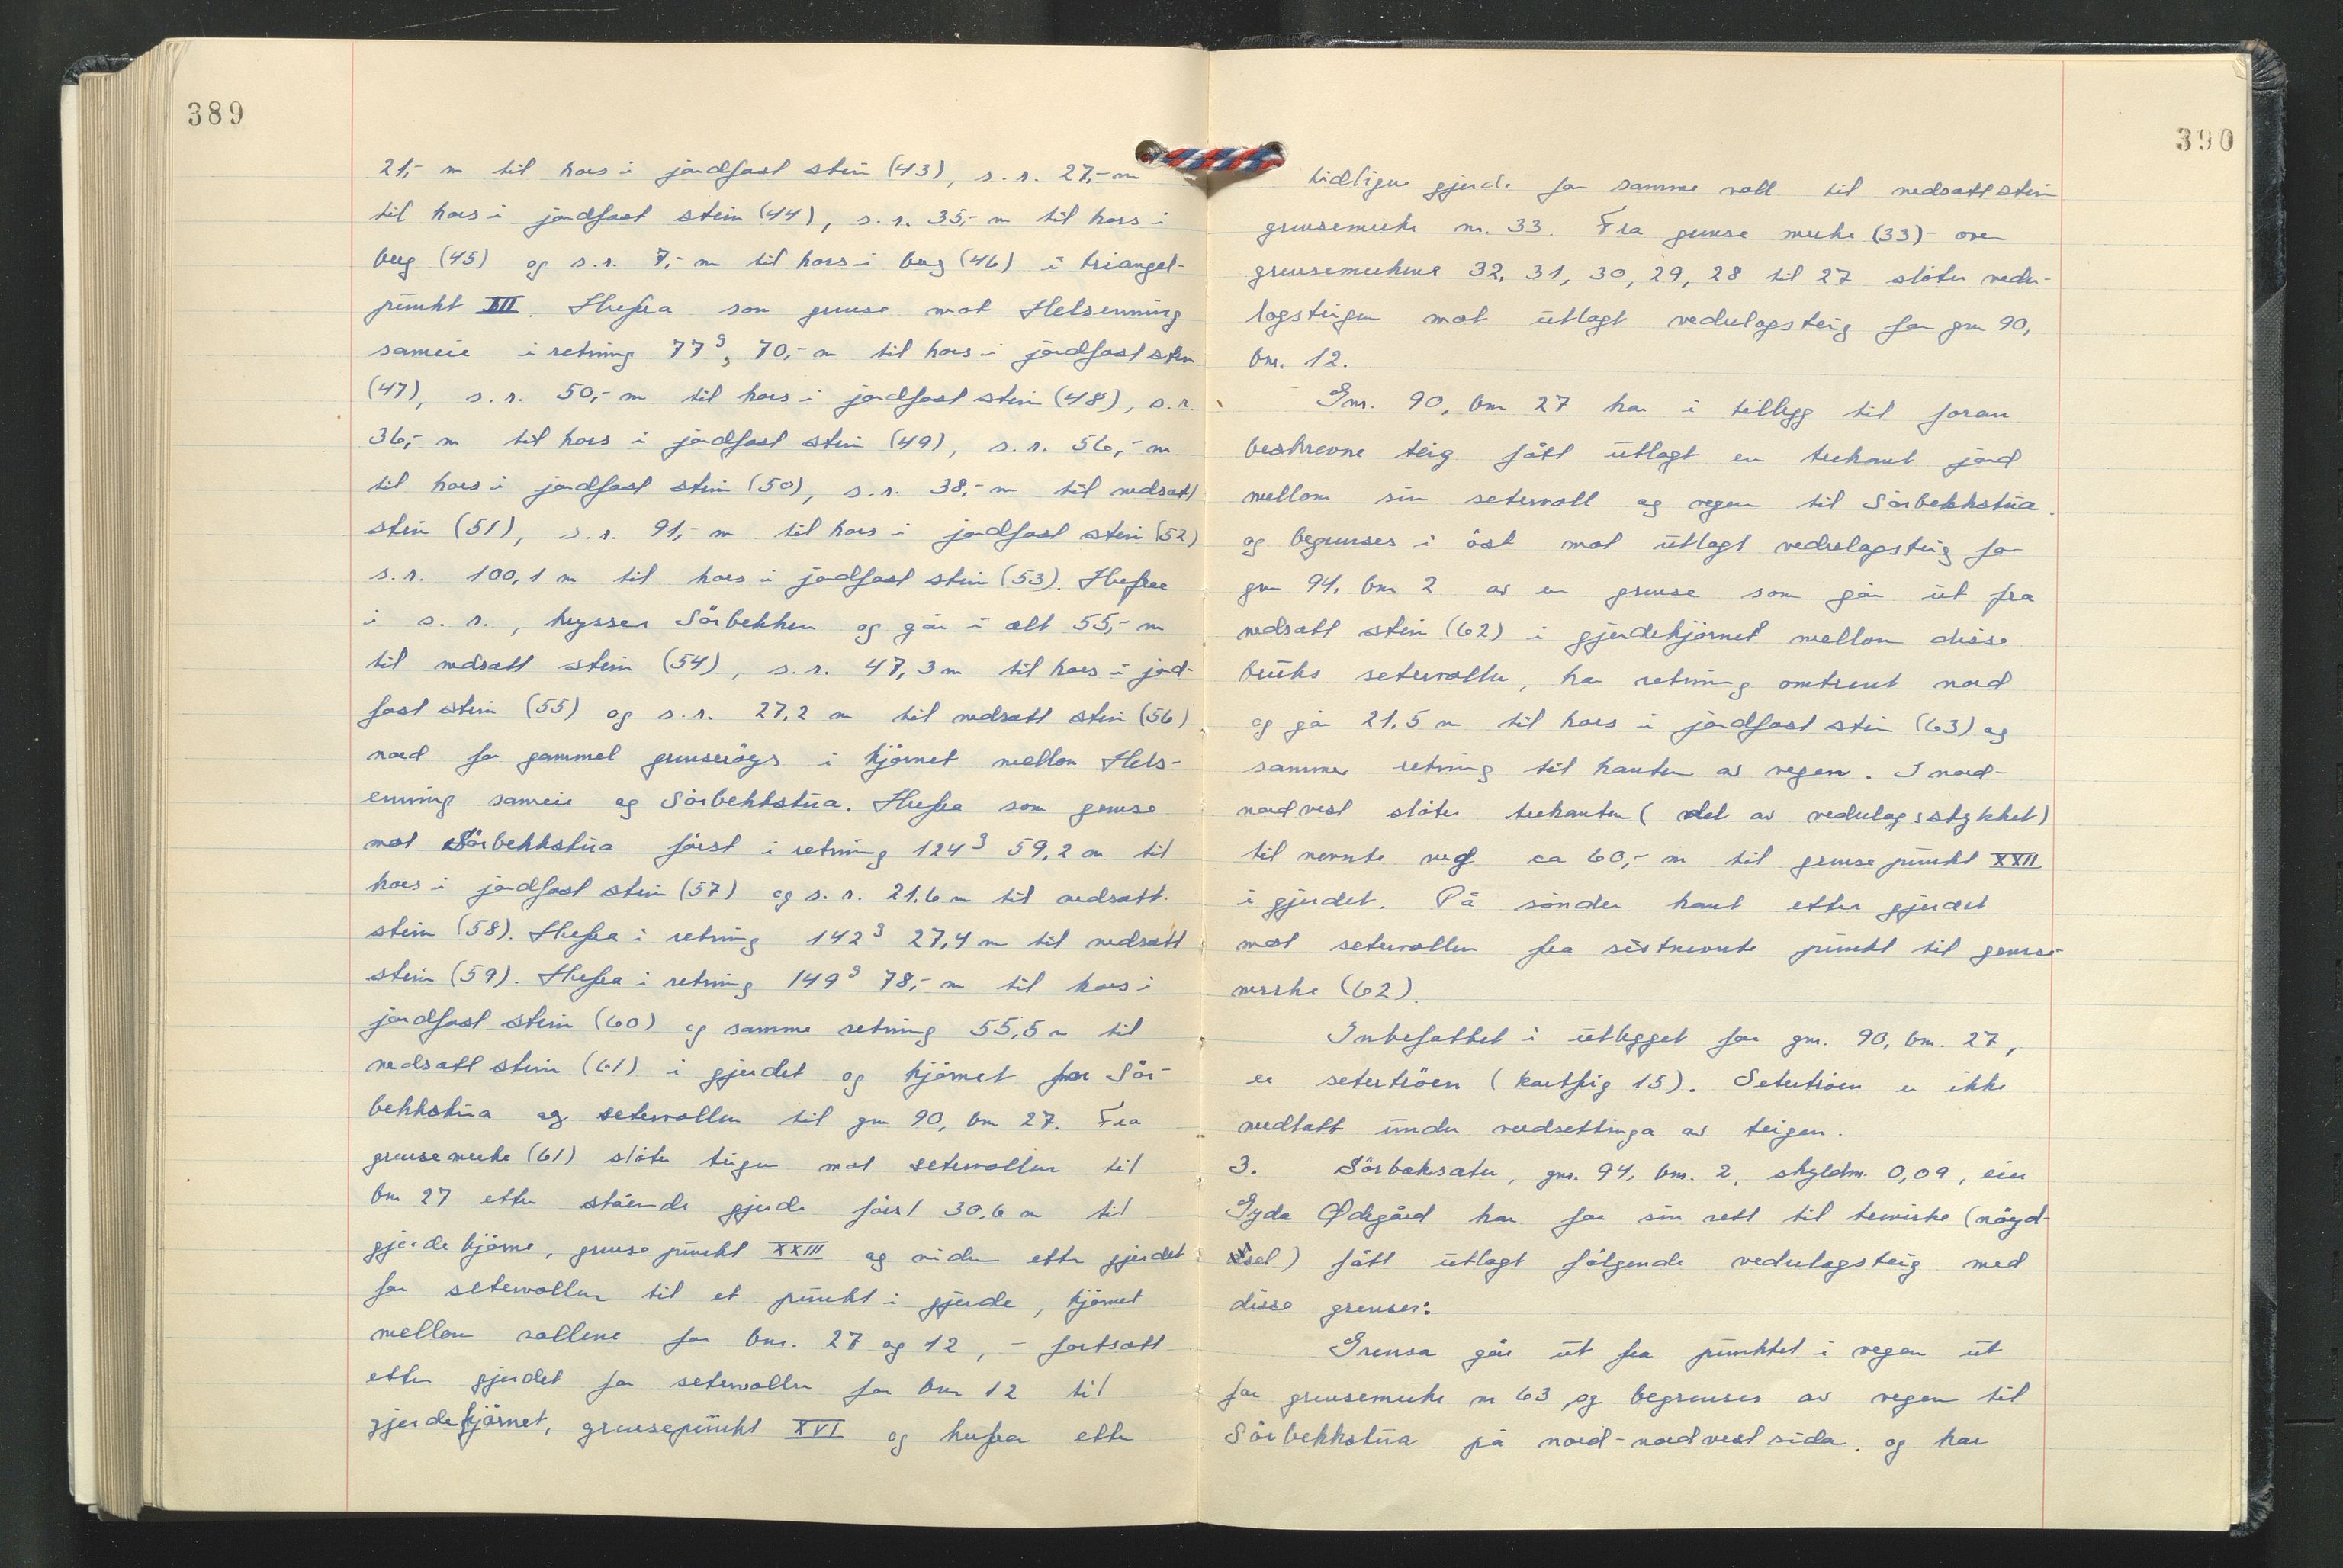 389
21,- m til kors i jordfast stein (43), s.r. 27,- m
til kors i jordfast stein (44), s.r. 35,- m til kors i
berg (45) og s.r. 7,- m til kors i berg (46) i triangel-
punkt III. Herfra som grense mot Helsenning
sameie i retning 77g, 70,- m til kors i jordfast stein
(47), s.r. 50,- m til kors i jordfast stein (48), s.r.
36,- m til kors i jordfast stein (49), s.r. 56,- m
til kors i jordfast stein (50), s.r. 38,- m til nedsatt
stein (51), s.r. 91,- m til kors i jordfast stein (52)
s.r. 100,1 m til kors i jordfast stein (53). Herfra
i s.r., krysser Sörbekken og går i alt 55,- m
til nedsatt stein (54), s.r. 47,3 m til kors i jord-
fast stein (55) og s.r. 27,2 m til nedsatt stein (56)
nord for gammel grenserøys i hjörnet mellom Hels-
enning sameie og Sörbekkstua. Herfra som grense
mot Sörbekkstua först i retning 124g 59,2 m til
kors i jordfast stein (57) og s.r. 21,6 m til nedsatt
stein (58). Herfra i retning 142g 27,4 m til nedsatt
stein (59). Herfra i retning 149g 78,- m til kors i
jordfast stein (60) og samme retning 55,5 m til
nedsatt stein (61) i gjerdet og hjörnet for Sör-
bekkstua og setervollen til gnr 90, bnr 27. Fra
grensemerke (61) stöter teigen mot setervollen til
bnr 27 etter stående gjerde först 30,6 m til
gjerdehjörne, grensepunkt XXIII og videre etter gjerdet
for setervollen til et punkt i gjerde, hjörnet
mellom vollene for bnr. 27 og 12, - fortsatt
etter gjerdet for setervollen for bnr 12 til
gjerdehjörnet, grensepunkt XVI og herfra etter
390
tidligere gjerde for samme voll til nedsatt stein
grensemerke nr. 33. Fra grense merke (33)- over
grensemerkene 32, 31, 30, 29, 28 til 27 stöter veder-
lagsteigen mot utlagt vederlagsteig for gnr 90,
bnr. 12.
Gnr. 90, bnr 27 har i tillegg til foran
beskrevne teig fått utlagt en trekant jord
mellom sin setervoll og vegen til Sörbekkstua.
og begrenses i öst mot utlagt vederlagsteig for
gnr 94, bnr 2 av en grense som går ut fra
nedsatt stein (62) i gjerdehjörnet mellom disse
bruks setervoller, har retning omtrent nord
og går 21,5 m til kors i jordfast stein (63) og
samme retning til kanten av vegen. I nord-
nordvest stöter trekanten (del av vederlagsstykket)
til nevnte veg ca 60,- m til grensepunkt XXII
i gjerdet. På söndre kant etter gjerdet
mot setervollen fra sistnevnte punkt til grense-
merke (62).
Innbefattet i utlegget for gnr. 90, bnr. 27,
er setertröen (kartfig 15). Setertröen er ikke
medtatt under verdsettinga av teigen.
3. Sörbaksæter, gnr. 94, bnr. 2, skyldm. 0,09, eier
Gyda Ødegård har for sin rett til tervirke (nöyd-
sel) fått utlagt fölgende vederlagsteig med
disse grenser:
Grensa går ut fra punktet i vegen ut
for grensemerke nr 63 og begrenses av vegen til
Sörbekkstua på nord-nordvest sida. og har